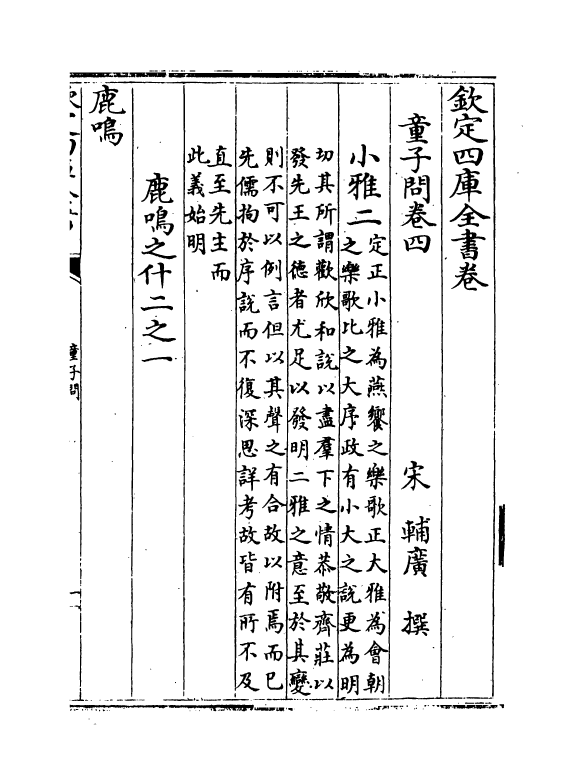 欽定四庫全書卷
童子問卷四
宋 輔廣 撰
小雅二
定正小雅為燕饗之樂歌正大雅為會朝
之樂歌比之大序政有小大之說更為明
切其所謂歡欣和說以盡羣下之情恭敬齊莊以
發先王之德者尤足以發明二雅之意至於其變
則不可以例言但以其聲之有合故以附焉而已
先儒拘於序說而不復深思詳考故皆有所不及
直至先生而
此義始明
鹿鳴之什二之一
鹿鳴
童子問
一